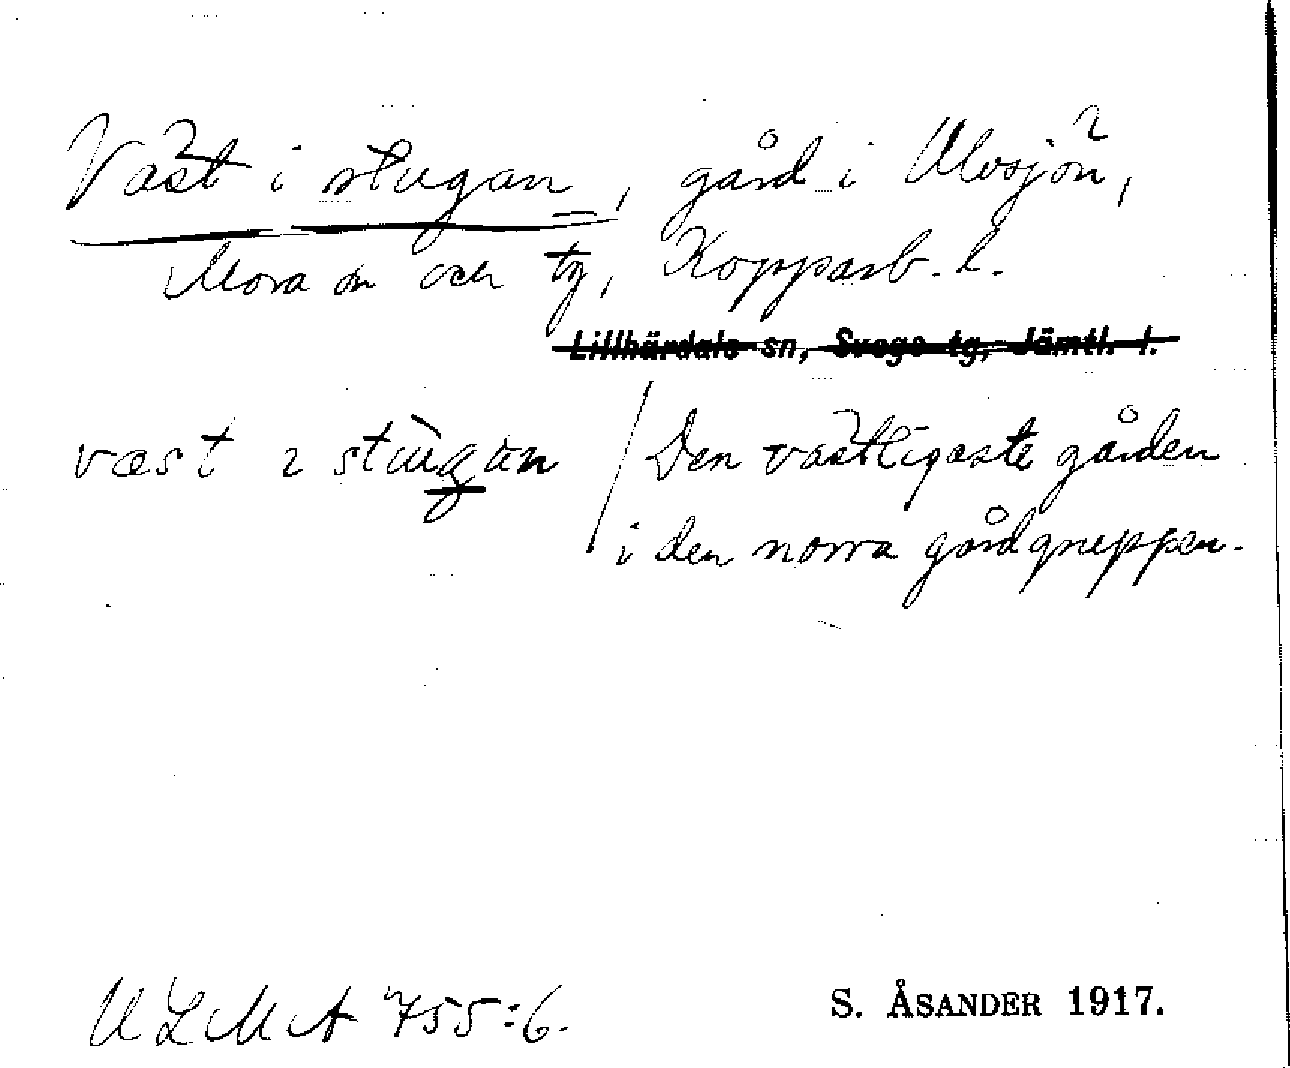 Väst i stugan, gård i Ulvsjön,
Mora sn och tg, Kopparb. l.
Lillhärdals sn, Svegs tg, Jämtl. l.
væst ɩ stùgan
Den västligaste gården
i den norra gårdgruppen.
ULMA 755:6.
S. ÅSANDER 1917.